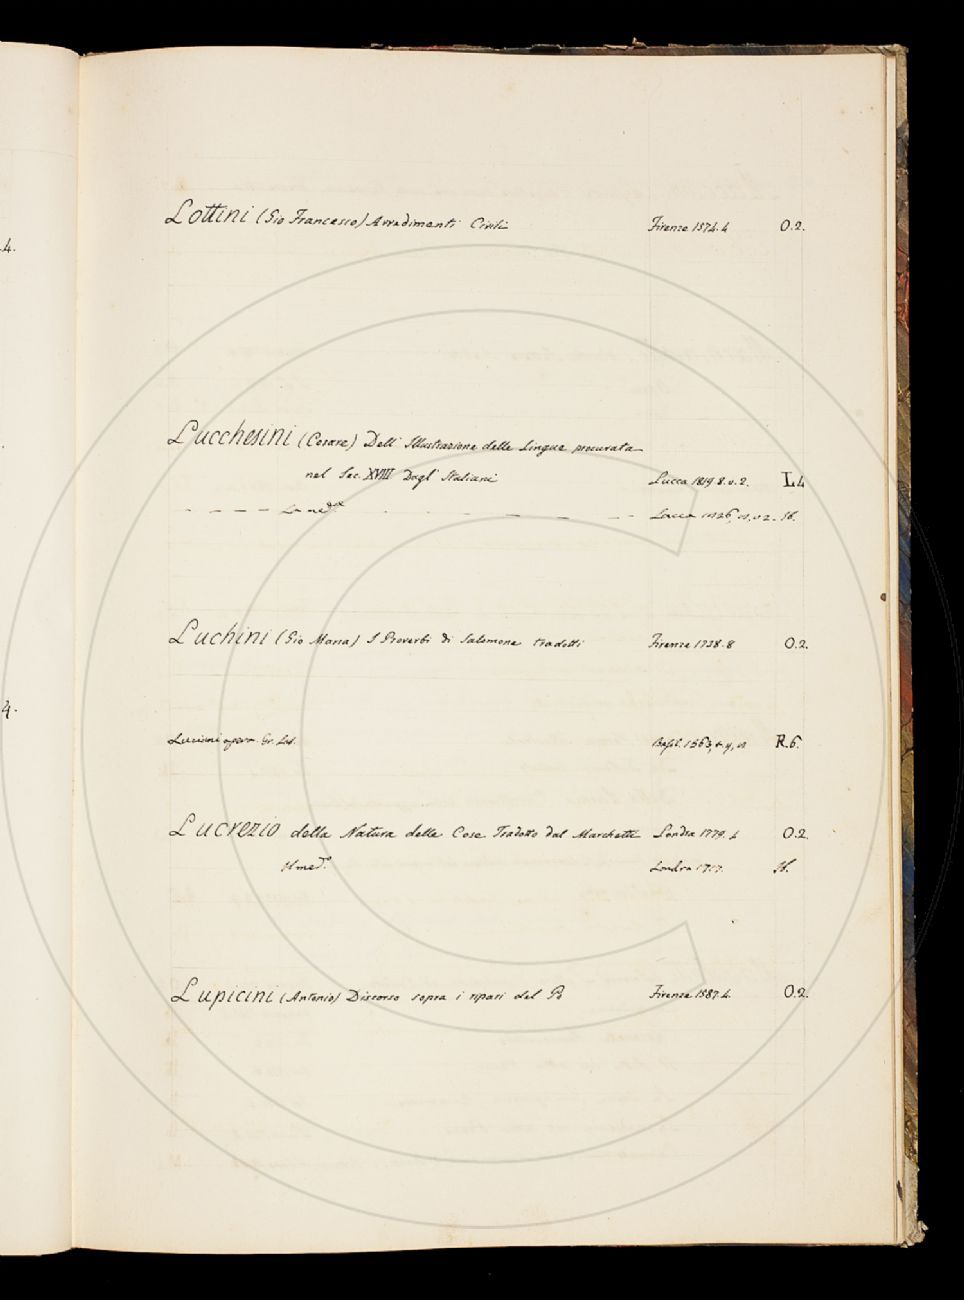 4.
Lottini (Gio Francesco) Avvedimenti Civili Firenze 1574. 4 O.2.
Lucchesini (Cesare) Dell' Illustrazione delle Lingue procurata
nel Sec. XVIII Dagl' Italiani Lucca 1819. 8. v. 2. L4
La med.a Lucca 1826, 8, v 2. Ib.
Luchini (Gio Maria) I Proverbi di Salomone tradotti Firenze 1738. 8 O.2.
4.
Luciani opera Gr. Lat. Basil. 1563, 4 v, 8 R.6.
Lucrezio della Natura delle Cose Tradotto dal Marchetti Londra 1779. 4 O.2.
Il med.o Londra 1717. Ib.
Lupicini (Antonio) Discorso sopra i ripari del Po Firenze 1587. 4. O.2.